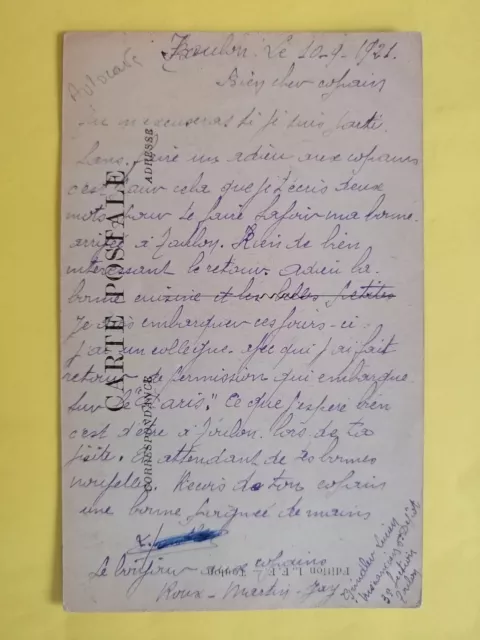 Toulon. Le 10-9-1921.
Bien cher copain
Tu m'excuseras si je suis parti
Sans faire un adieu aux copains
c'est pour cela que je t'écris deux
mots pour te faire savoir ma bonne
arrivée à Toulon. Rien de bien
intéressant le retour. Adieu la
bonne cuisine et les belles petites
Je vais embarquer ces jours-ci
J'ai un collègue avec qui j'ai fait
retour de permission qui embarque
sur le "Paris". Ce que j'espère bien
c'est d'être à Toulon lors de ta
visite. En attendant de tes bonnes
nouvelles. Reçois de ton copain
une bonne poignée de mains
Le bonjour aux copains
Roux - Martin -
CARTE POSTALE
CORRESPONDANCE
ADRESSE
Edition L. F. Toulon